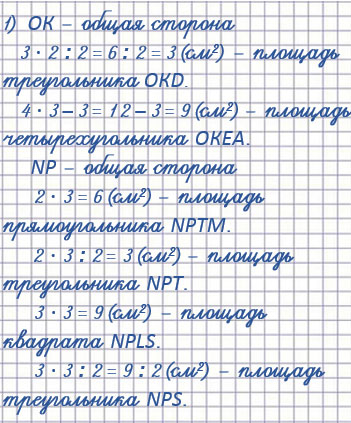 1) ОК – общая сторона
3 · 2 : 2 = 6 : 2 = 3 (см²) – площадь
треугольника OKD.
4 · 3 – 3 = 12 – 3 = 9 (см²) – площадь
четырехугольника ОКЕА.
NP – общая сторона
2 · 3 = 6 (см²) – площадь
прямоугольника NPTM.
2 · 3 : 2 = 3 (см²) – площадь
треугольника NPT.
3 · 3 = 9 (см²) – площадь
квадрата NPLS.
3 · 3 : 2 = 9 : 2 (см²) – площадь
треугольника NPS.